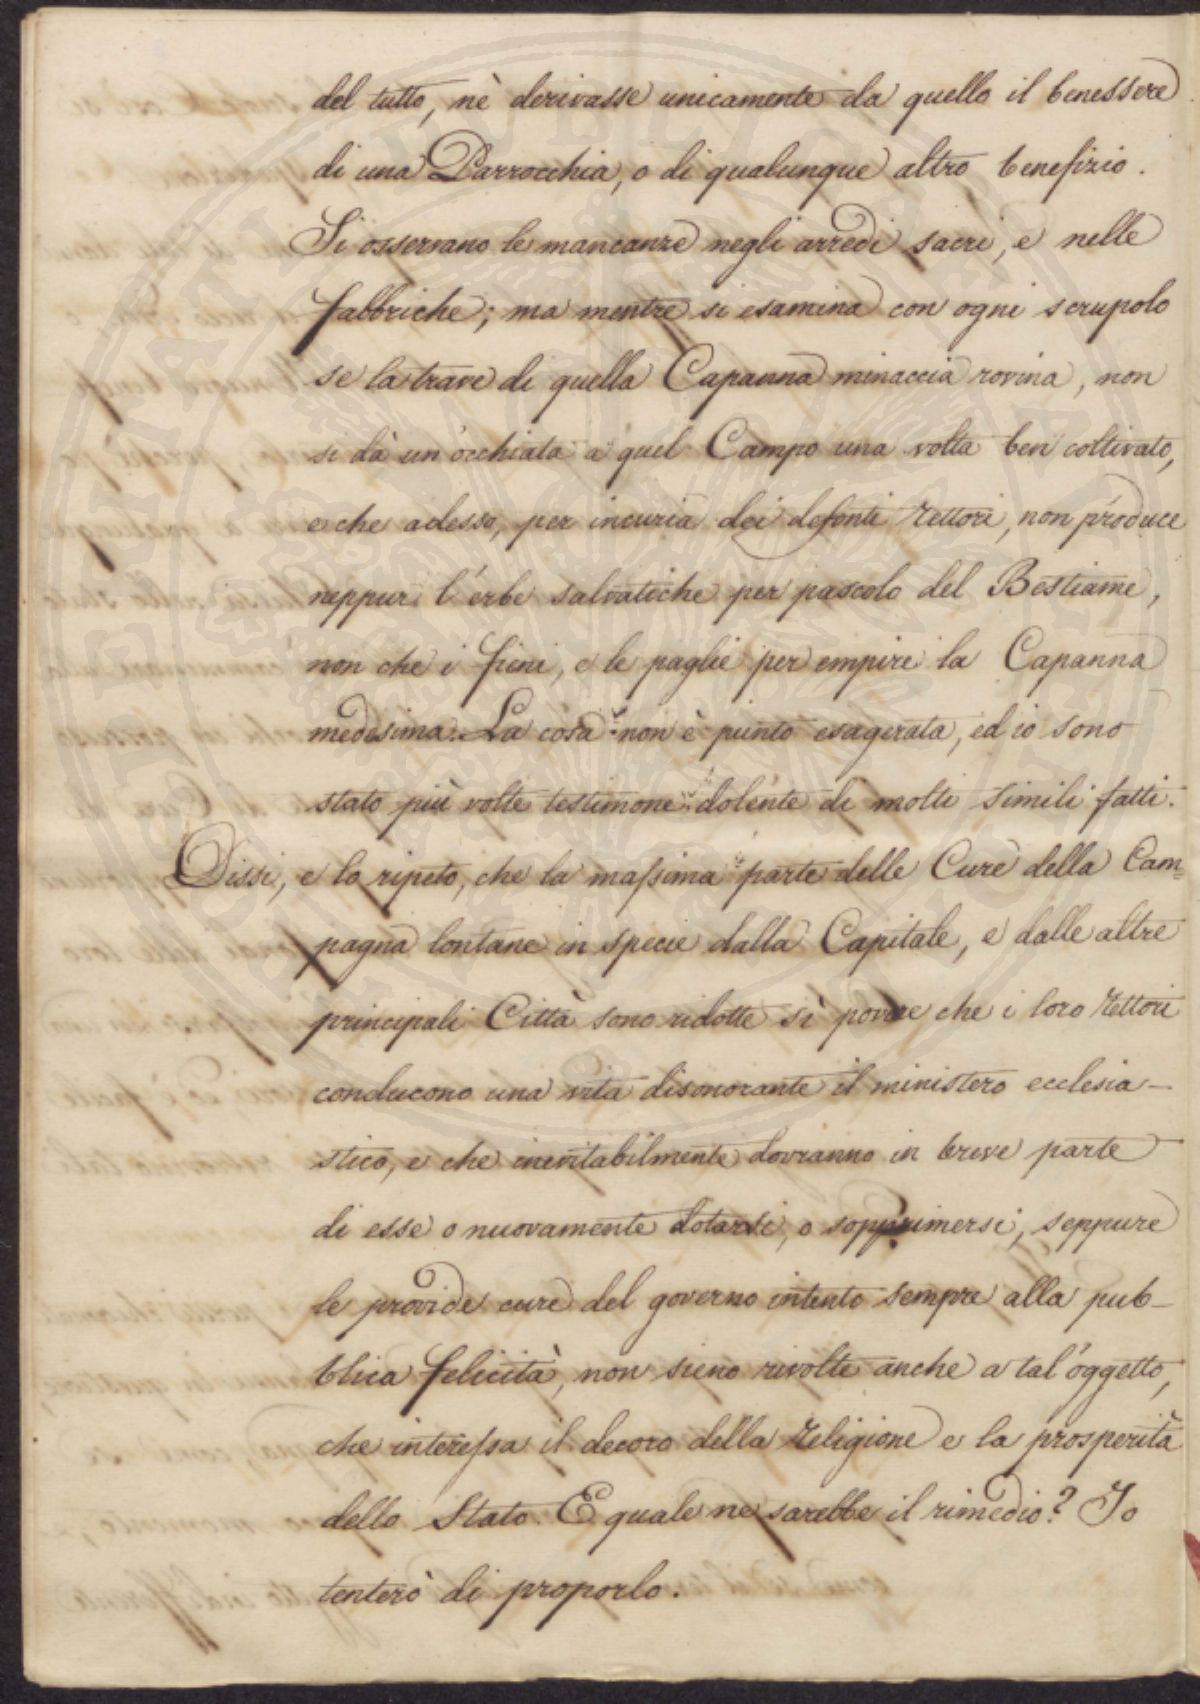 del tutto, nè derivasse unicamente da quello il benessere
di una Parrocchia, o di qualunque altro benefizio.
Si osservano le mancanze negli arredi sacri, e nelle
fabbriche; ma mentre si esamina con ogni scrupolo
se la trave di quella Capanna minaccia rovina, non
si dà un'occhiata a quel Campo una volta ben coltivato,
e che adesso, per incuria dei defonti Rettori, non produce
neppur l'erbe salvatiche per pascolo del Bestiame,
non che i fieni, e le paglie per empire la Capanna
medesima. La cosa non è punto esagerata, ed io sono
stato più volte testimone dolente di molti simili fatti.
Dissi, e lo ripeto, che la massima parte delle Cure della Cam=
pagna lontane in specie dalla Capitale, e dalle altre
principali Città sono ridotte sì povere che i loro Rettori
conducono una vita disonorante il ministero ecclesia-
stico, e che inevitabilmente dovranno in breve parte
di esse o nuovamente dotarsi, o sopprimersi, seppure
le provide cure del governo intento sempre alla pub-
blica felicità, non sieno rivolte anche a tal'oggetto,
che interessa il decoro della Religione e la prosperità
dello Stato. E quale ne sarebbe il rimedio? Io
tenterò di proporlo.